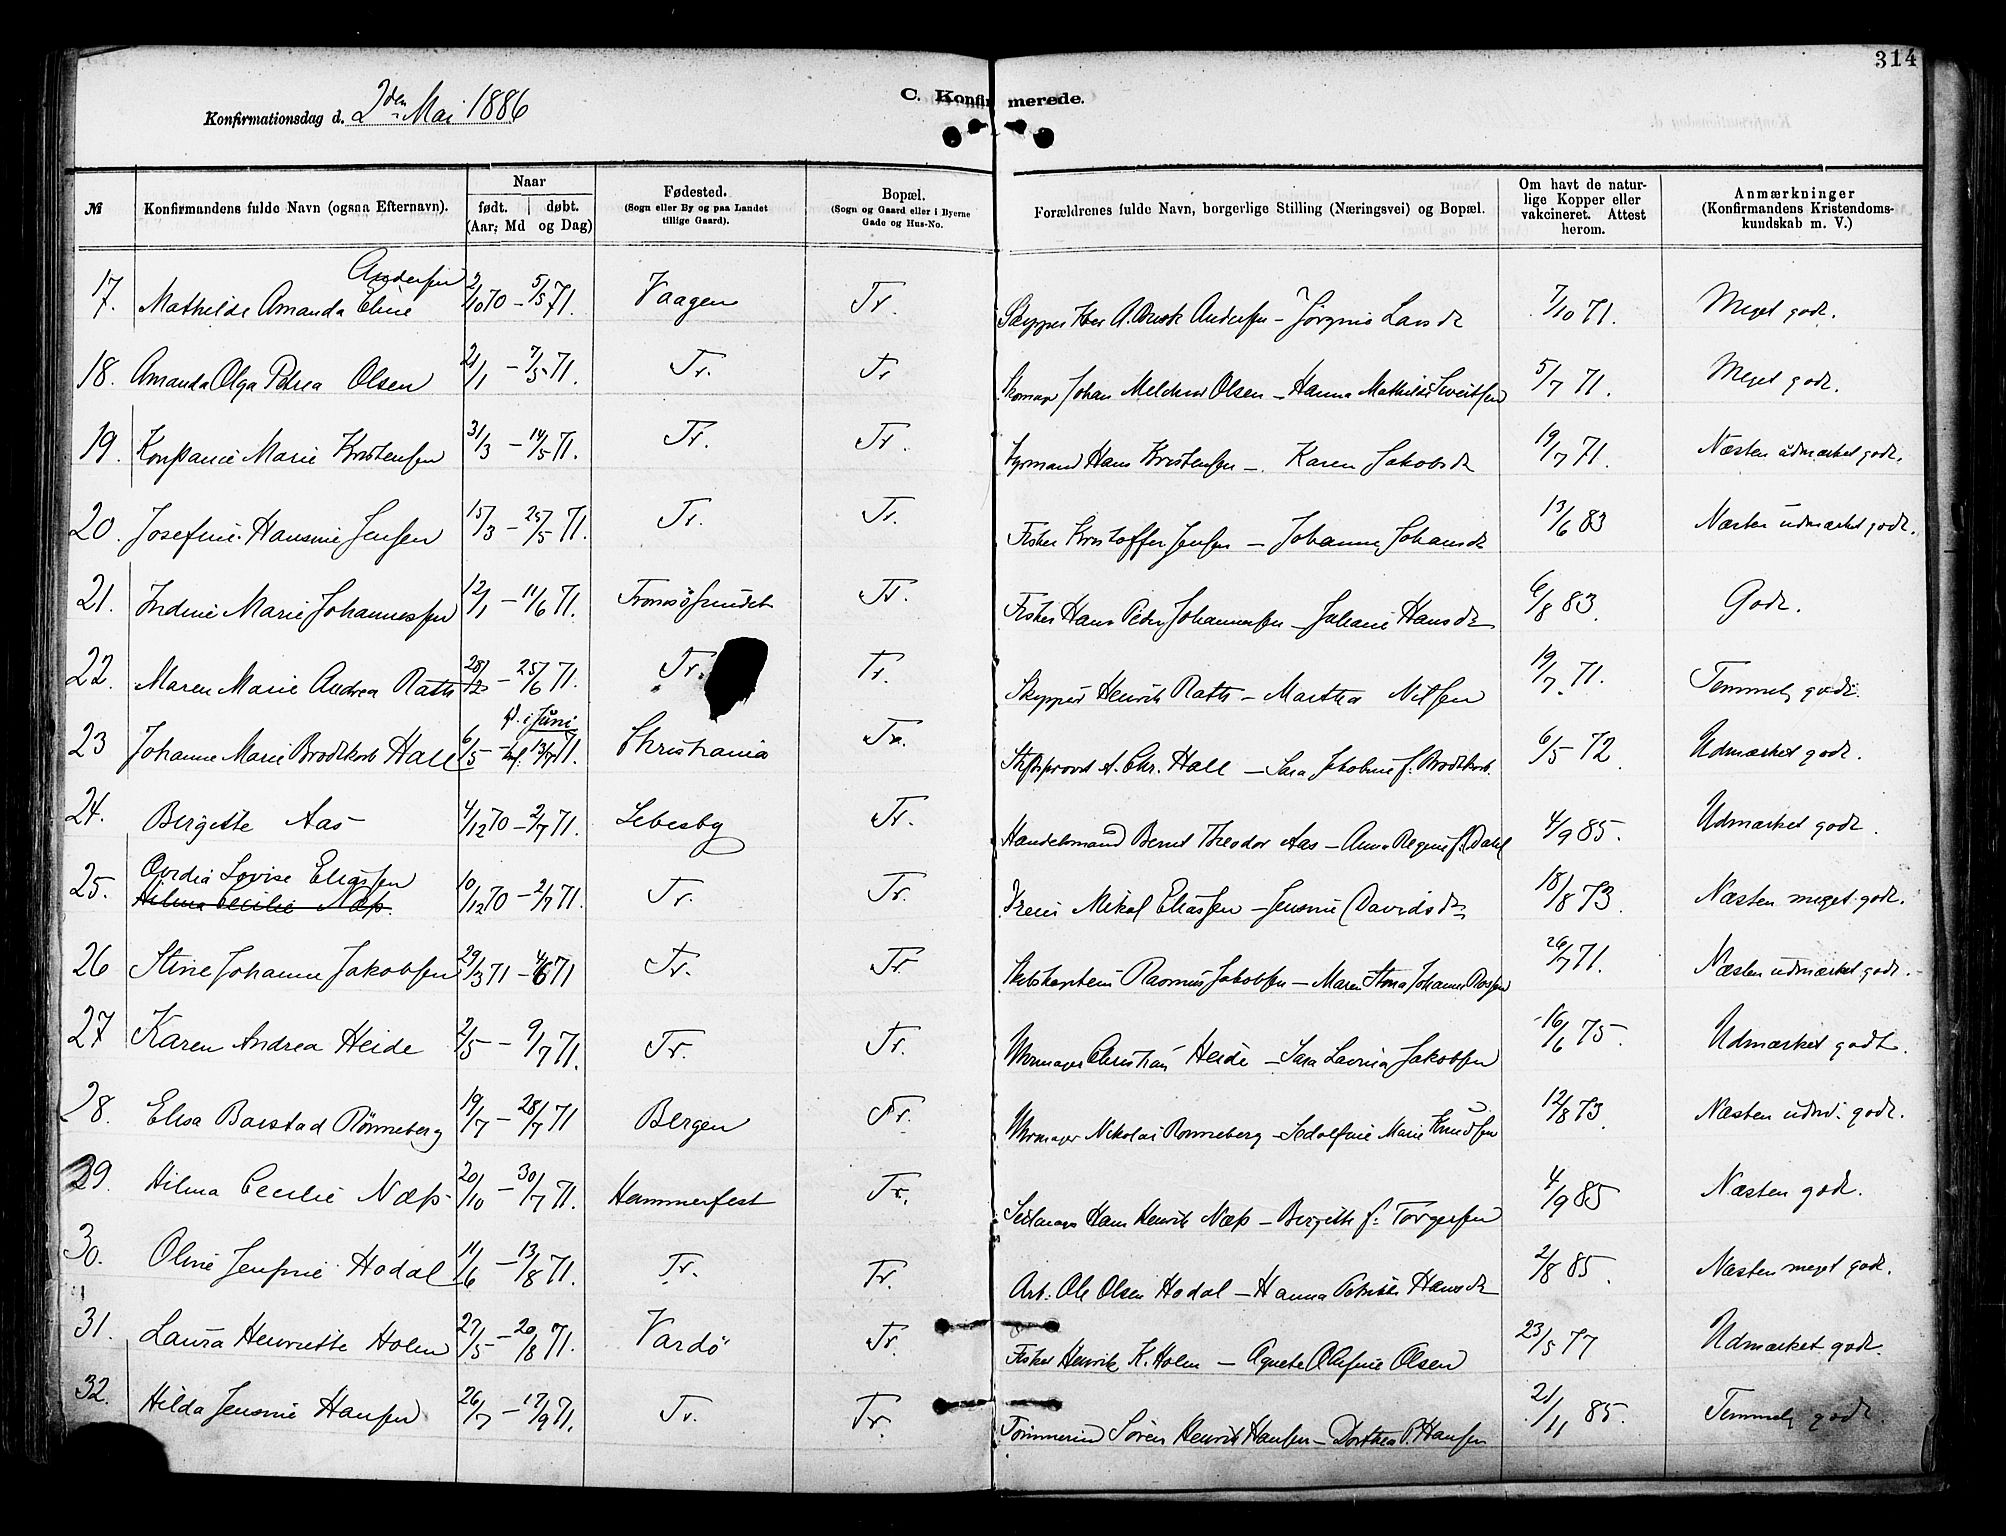 314
C. Konfirmerede.
Konfirmationsdag d. 2den Mai 1886
№ Konfirmandens fulde Navn (ogsaa Efternavn). Naar født. døbt. (Aar, Md og Dag) Fødested. (Sogn eller By og paa Landet tillige Gaard). Bopæl. (Sogn og Gaard eller i Byerne Gade og Hus-No. Forældrenes fulde Navn, borgerlige Stilling (Næringsvei) og Bopæl. Om havt de naturlige Kopper eller vakcineret. Attest herom. Anmærkninger (Konfirmandens Kristendomskundskab m. V.)
Andersen
17. Mathilde Amanda Eline 2/10 70 – 5/5 71. Vaagen Tr. Skipper Andersen – Lars d 7/10 71. Meget godt.
18. Amanda Olga Petrea Olsen 21/1 – 7/5 71. Tr. Tr Johan Melchior Olsen – Hanna Mathilde 5/7 71. Meget godt.
19. Konstance Marie Kristensen 31/3 – 14/5 71. Tr. Tr. Styrmand Hans Kristensen – Karen Jakobsd 19/7 71. Næsten udmærket godt.
20. Josefine Hansine Jensen 15/3 – 25/5 71. Tr. Tr. Fisker Kristoffer Jensen – Johanna Johansd 13/6 83 Næsten udmærket godt.
21. Indine Marie Johannessen 12/1 – 11/6 71. Tromsøsundet Tr. Fisker Hans Peder Johannessen – Juliane Hansd 6/8 83. Godt.
22. Maren Marie Andrea Rath 28/12 – 25/6 71. Tr. Tr. Skipper Henrik Rath – Martha Nilsen 19/7 71. Temmel. godt.
d. i Juni
23 Johanne Marie Brodtkorb Hall 6/5 – 13/7 71. Christiania Tr. Stiftsprovst A. Chr. Hall – Sara Jakobine f. Brodtkorb. 6/5 72. Udmærket godt.
24. Bergette Aas 4/12 70 – 2/7 71. Lebesby Tr. Handelsmand Bernt Theodor Aas – Anna Regine f. Dahl 4/9 85. Udmærket godt.
25. Ovedia Lovise Eliassen 10/12 70 – 2/7 71. Tr. Tr. Mikal Eliassen – Jensine Davidsd 18/8 73. Næsten meget godt.
Hilma Cecilie Næss.
26 Stine Johanne Jakobsen 29/3 71 – 4/6 71 Tr. Tr. Skibskaptein Rasmus Jakobsen – Maren Stina Johanna 26/7 71. Næsten udmærket godt.
27 Karen Andrea Heide 2/5 – 9/7 71. Tr. Tr. Uhrmager Christian Heide – Sara Lavina Jakobsen 16/6 75. Udmærket godt.
28. Elisa Barstad Rønneberg 19/7 – 28/7 71 Bergen Tr. Uhrmager Nikolai Rønneberg – Marie Knudsen 12/8 73. Næsten udm. godt.
29. Hilma Cecilie Næss 20/10 – 30/7 71. Hammerfest Tr. Seilmager Hans Henrik Næss – Bergitte f. Torgersen 4/9 85 Næsten godt.
30. Oline Jensine Hodal 11/6 – 13/8 71. Tr. Tr. Arb. Ole Olsen Hodal – Hanna Hansd 2/8 85. Næsten meget godt.
31. Laura Henriette Holm 27/5 – 20/8 71. Vardø Tr. Fisker Henrik K. Holm – Agnete Olefine Olsen 23/5 77 Udmærket godt.
32. Hilda Jensine Hansen 26/7 – 17/9 71. Tr. Tr. Tømmermd Søren Henrik Hansen – Dorthea P. Hansen 21/11 85. Temmel. godt.